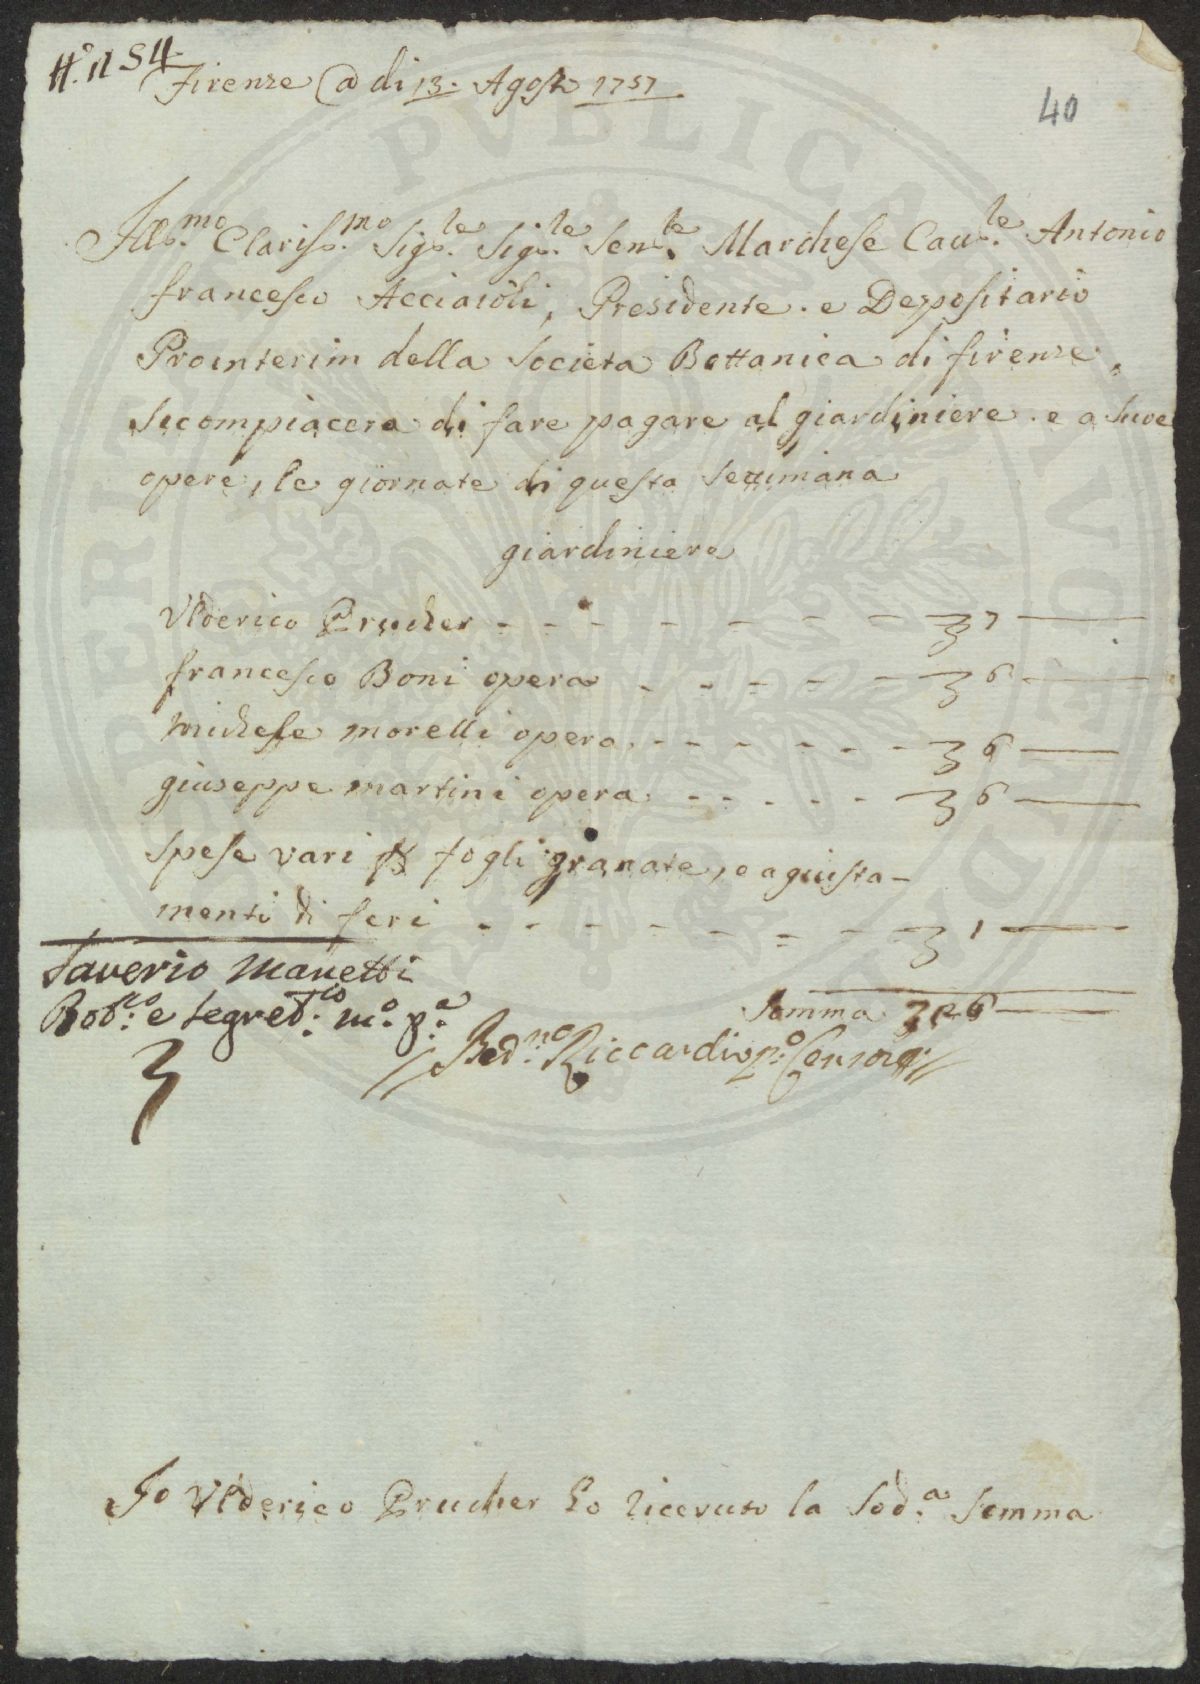 N.° 154
Firenze a di 13. Agost. 1757
40
Ill.mo Clariss.mo Sig.le Sig.le Sen.le Marchese Cau.le Antonio
francesco Acciaioli, Presidente. e Depositario
Prointerim della Societa Bottanica di firenze,
Si compiacera di fare pagare al giardiniere. e a sue
opere, le giornate di questa settimana
giardiniere
Ulderico Prucher - - - - - - - 7
francesco Boni opera - - - - - 6
Michele morelli opera, - - - - - - 6
giuseppe martini opera - - - - - 6
Spese vari fogli granate, e aguista-
menti di feri - - - - - - - 1
Saverio Manetti
Bot.co e Segret.rio m.o p.a
Somma 26
Bed.no Riccardi p.o Censore
Io Ulderico Prucher ho riceuuto la Sod.a Somma